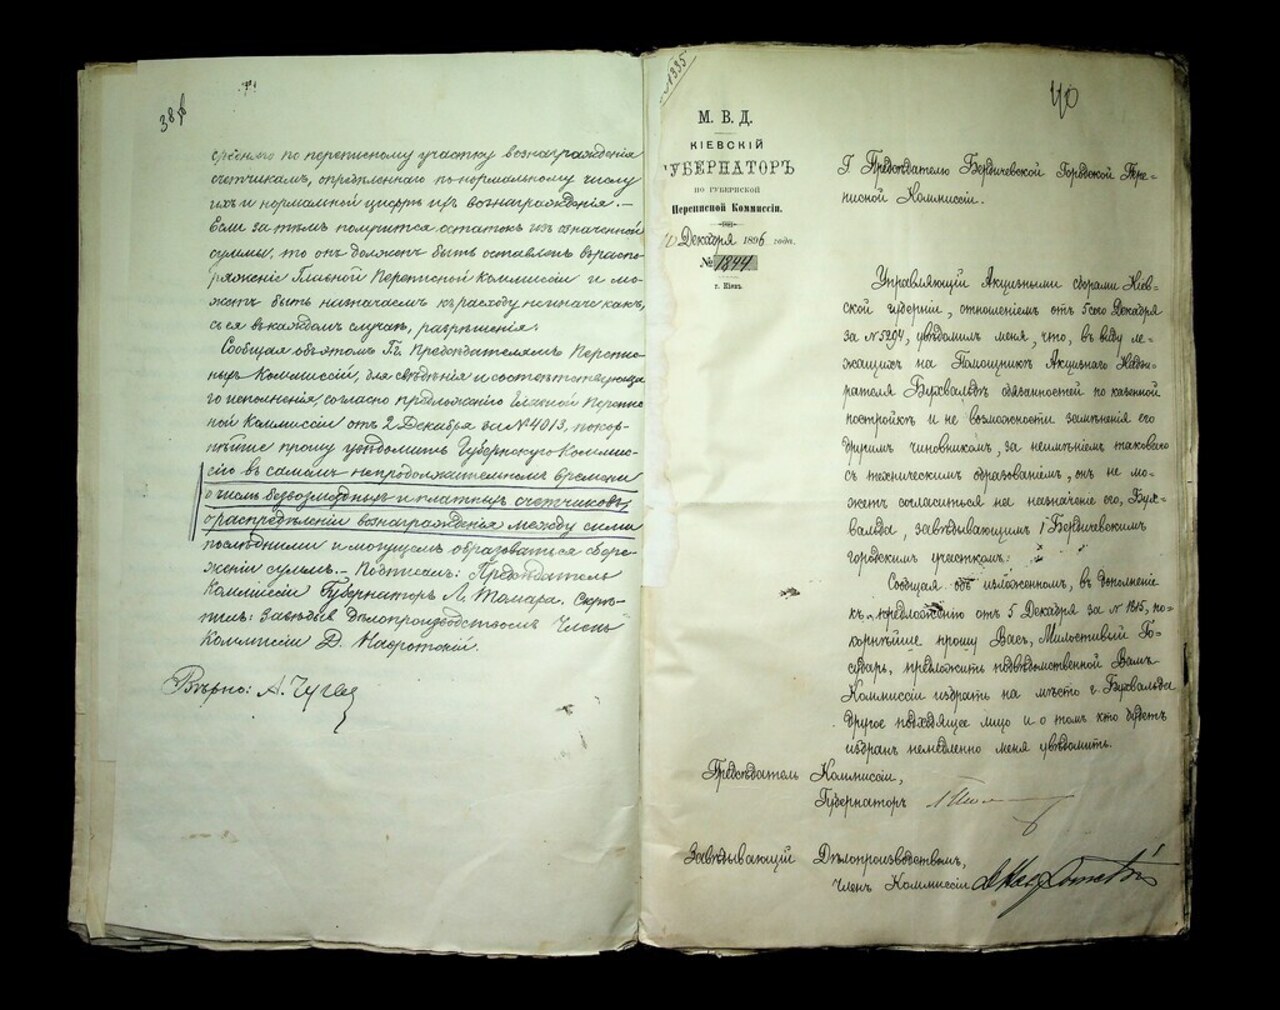 38 об
средняго по переписному участку вознагражденія
счетчикамъ, опредѣленнаго по нормальному числу
ихъ и нормальной цифры ихъ вознагражденія. –
Если за тѣмъ получится остатокъ изъ означенной
суммы, то онъ долженъ быть оставленъ въ распо-
ряженіи Главной Переписной Коммиссіи и мо-
жетъ быть назначаемъ къ расходу не иначе какъ,
съ ея въ каждомъ случаѣ, разрѣшенія.
Сообщая объ этомъ Гг. Предсѣдателямъ Перепис-
ныхъ Коммиссій, для свѣдѣнія и соотвѣтствующа
го исполненія, согласно предложенію Главной Перепис
ной Коммиссіи отъ 2 Декабря за № 4013, покор-
нѣйше прошу увѣдомить Губернскую Коммис-
сію въ самомъ непродолжительномъ времени
о числѣ безвозмездныхъ и платныхъ счетчиковъ,
о распредѣленіи вознагражденія между сими
послѣдними и могущемъ образоваться сбере-
женіи суммъ. – Подписалъ: Предсѣдатель
Коммиссіи Губернаторъ Л. Томара. Скрѣ-
пилъ: Завѣдыв. Дѣлопроизводствомъ Членъ
Коммиссіи Д. Навротскій.
Вѣрно: А.
№ 335
40
М. В. Д.
КІЕВСКІЙ
ГУБЕРНАТОРЪ
ПО ГУБЕРНСКОЙ
Переписной Коммиссіи.
10 Декабря 1896 года.
№ 1844
г. Кіевъ.
Г. Предсѣдателю Бердичевской Городской Пере-
писной Коммиссіи.
Управляющій Акцизными сборами Кіев-
ской губерніи, отношеніемъ отъ 5 сего Декабря
за № 5294, увѣдомилъ меня, что, въ виду ле-
жащихъ на Помощникѣ Акцизнаго Надзи-
рателя Бухвальдѣ обязанностей по казенной
постройкѣ и не возможности замѣненія его
другимъ чиновникомъ, за неимѣніемъ таковаго
съ техническимъ образованіемъ, онъ не мо-
жетъ согласиться на назначеніе его, Бух-
вальда, завѣдывающимъ 1 Бердичевскимъ
городскимъ участкомъ.
Сообщая объ изложенномъ, въ дополненіе
къ предложенію отъ 5 Декабря за № 1815, по-
корнѣйше прошу Васъ, Милостивый Го-
сударь, предложить подвѣдомственной Вамъ
Коммиссіи избрать на мѣсто г. Бухвальда
другое подходящее лицо и о томъ кто будетъ
избранъ немедленно меня увѣдомить.
Предсѣдатель Коммиссіи,
Губернаторъ
Завѣдывающій Дѣлопроизводствомъ,
Членъ Коммиссіи Д Навротскій